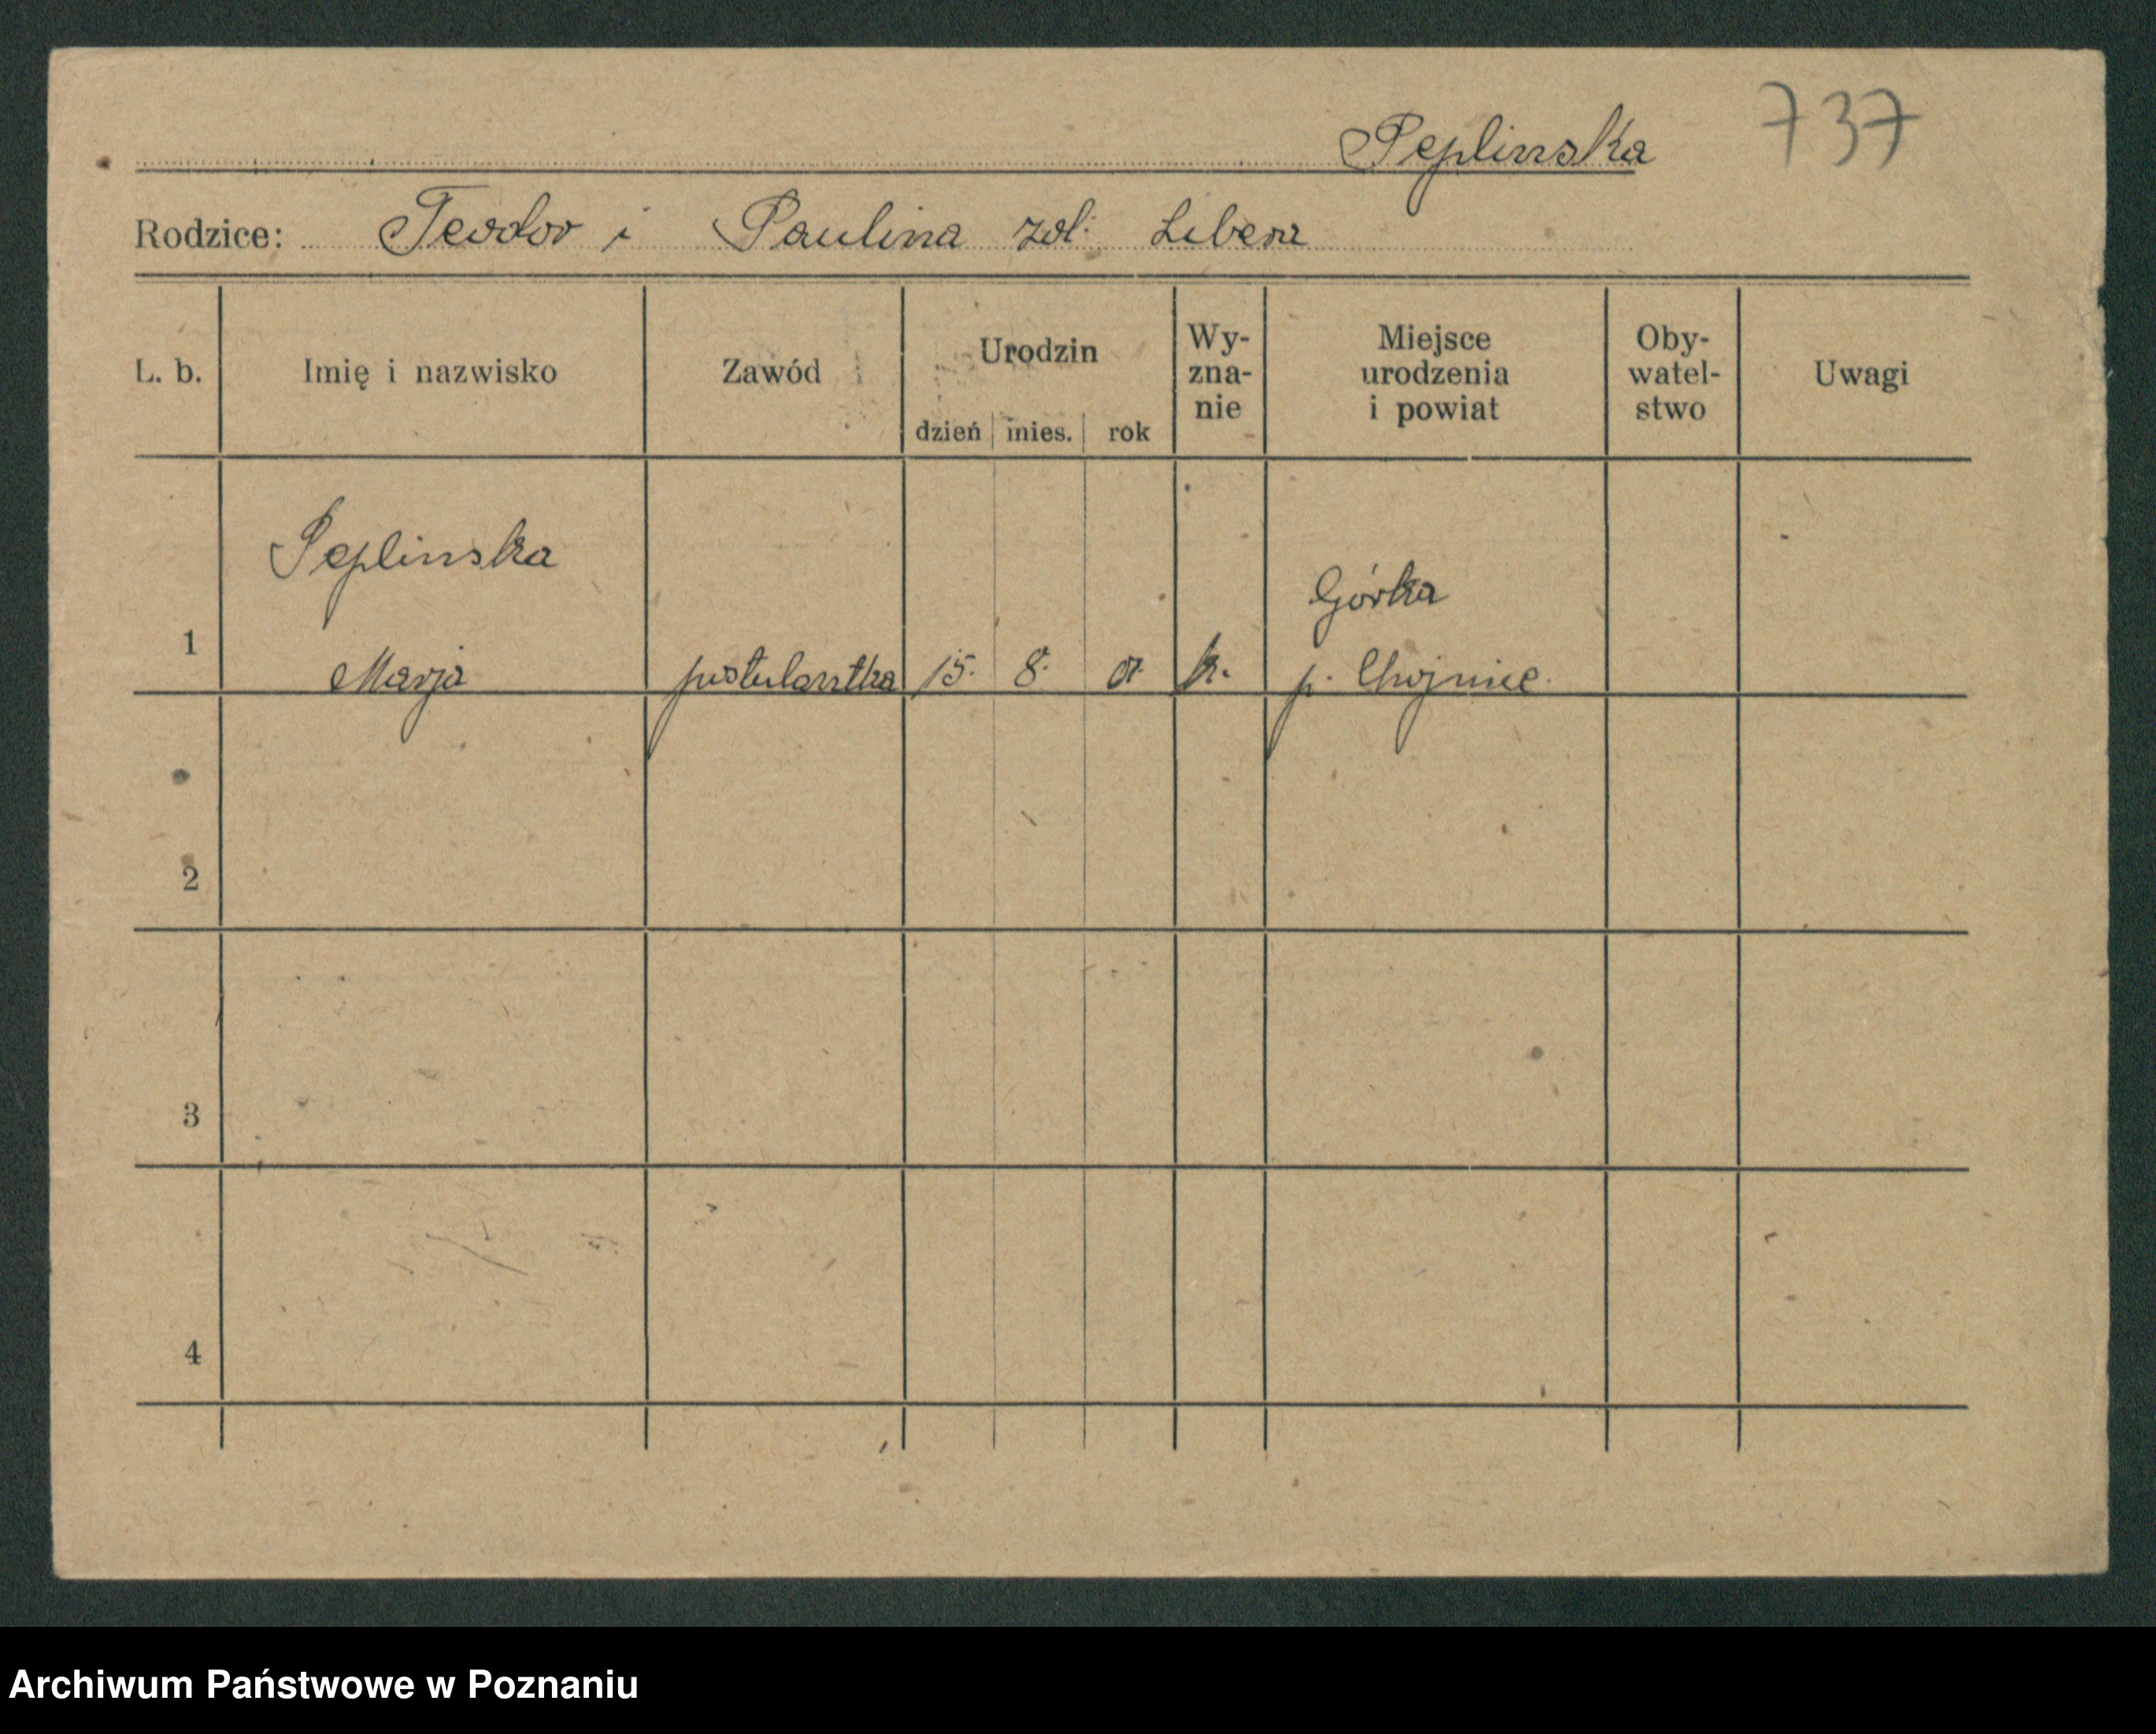 Peplinska 737
Rodzice: Teodor i Paulina zd. Libera
L. b. Imię i nazwisko Zawód Urodzin Wy- Miejsce Oby- Uwagi
zna- urodzenia watel-
nie i powiat stwo
dzień mies. rok
Peplinska
Górka
1 Marja postulantka 15. 8. k. p. Chojnice.
2
3
4
Archiwum Państwowe w Poznaniu